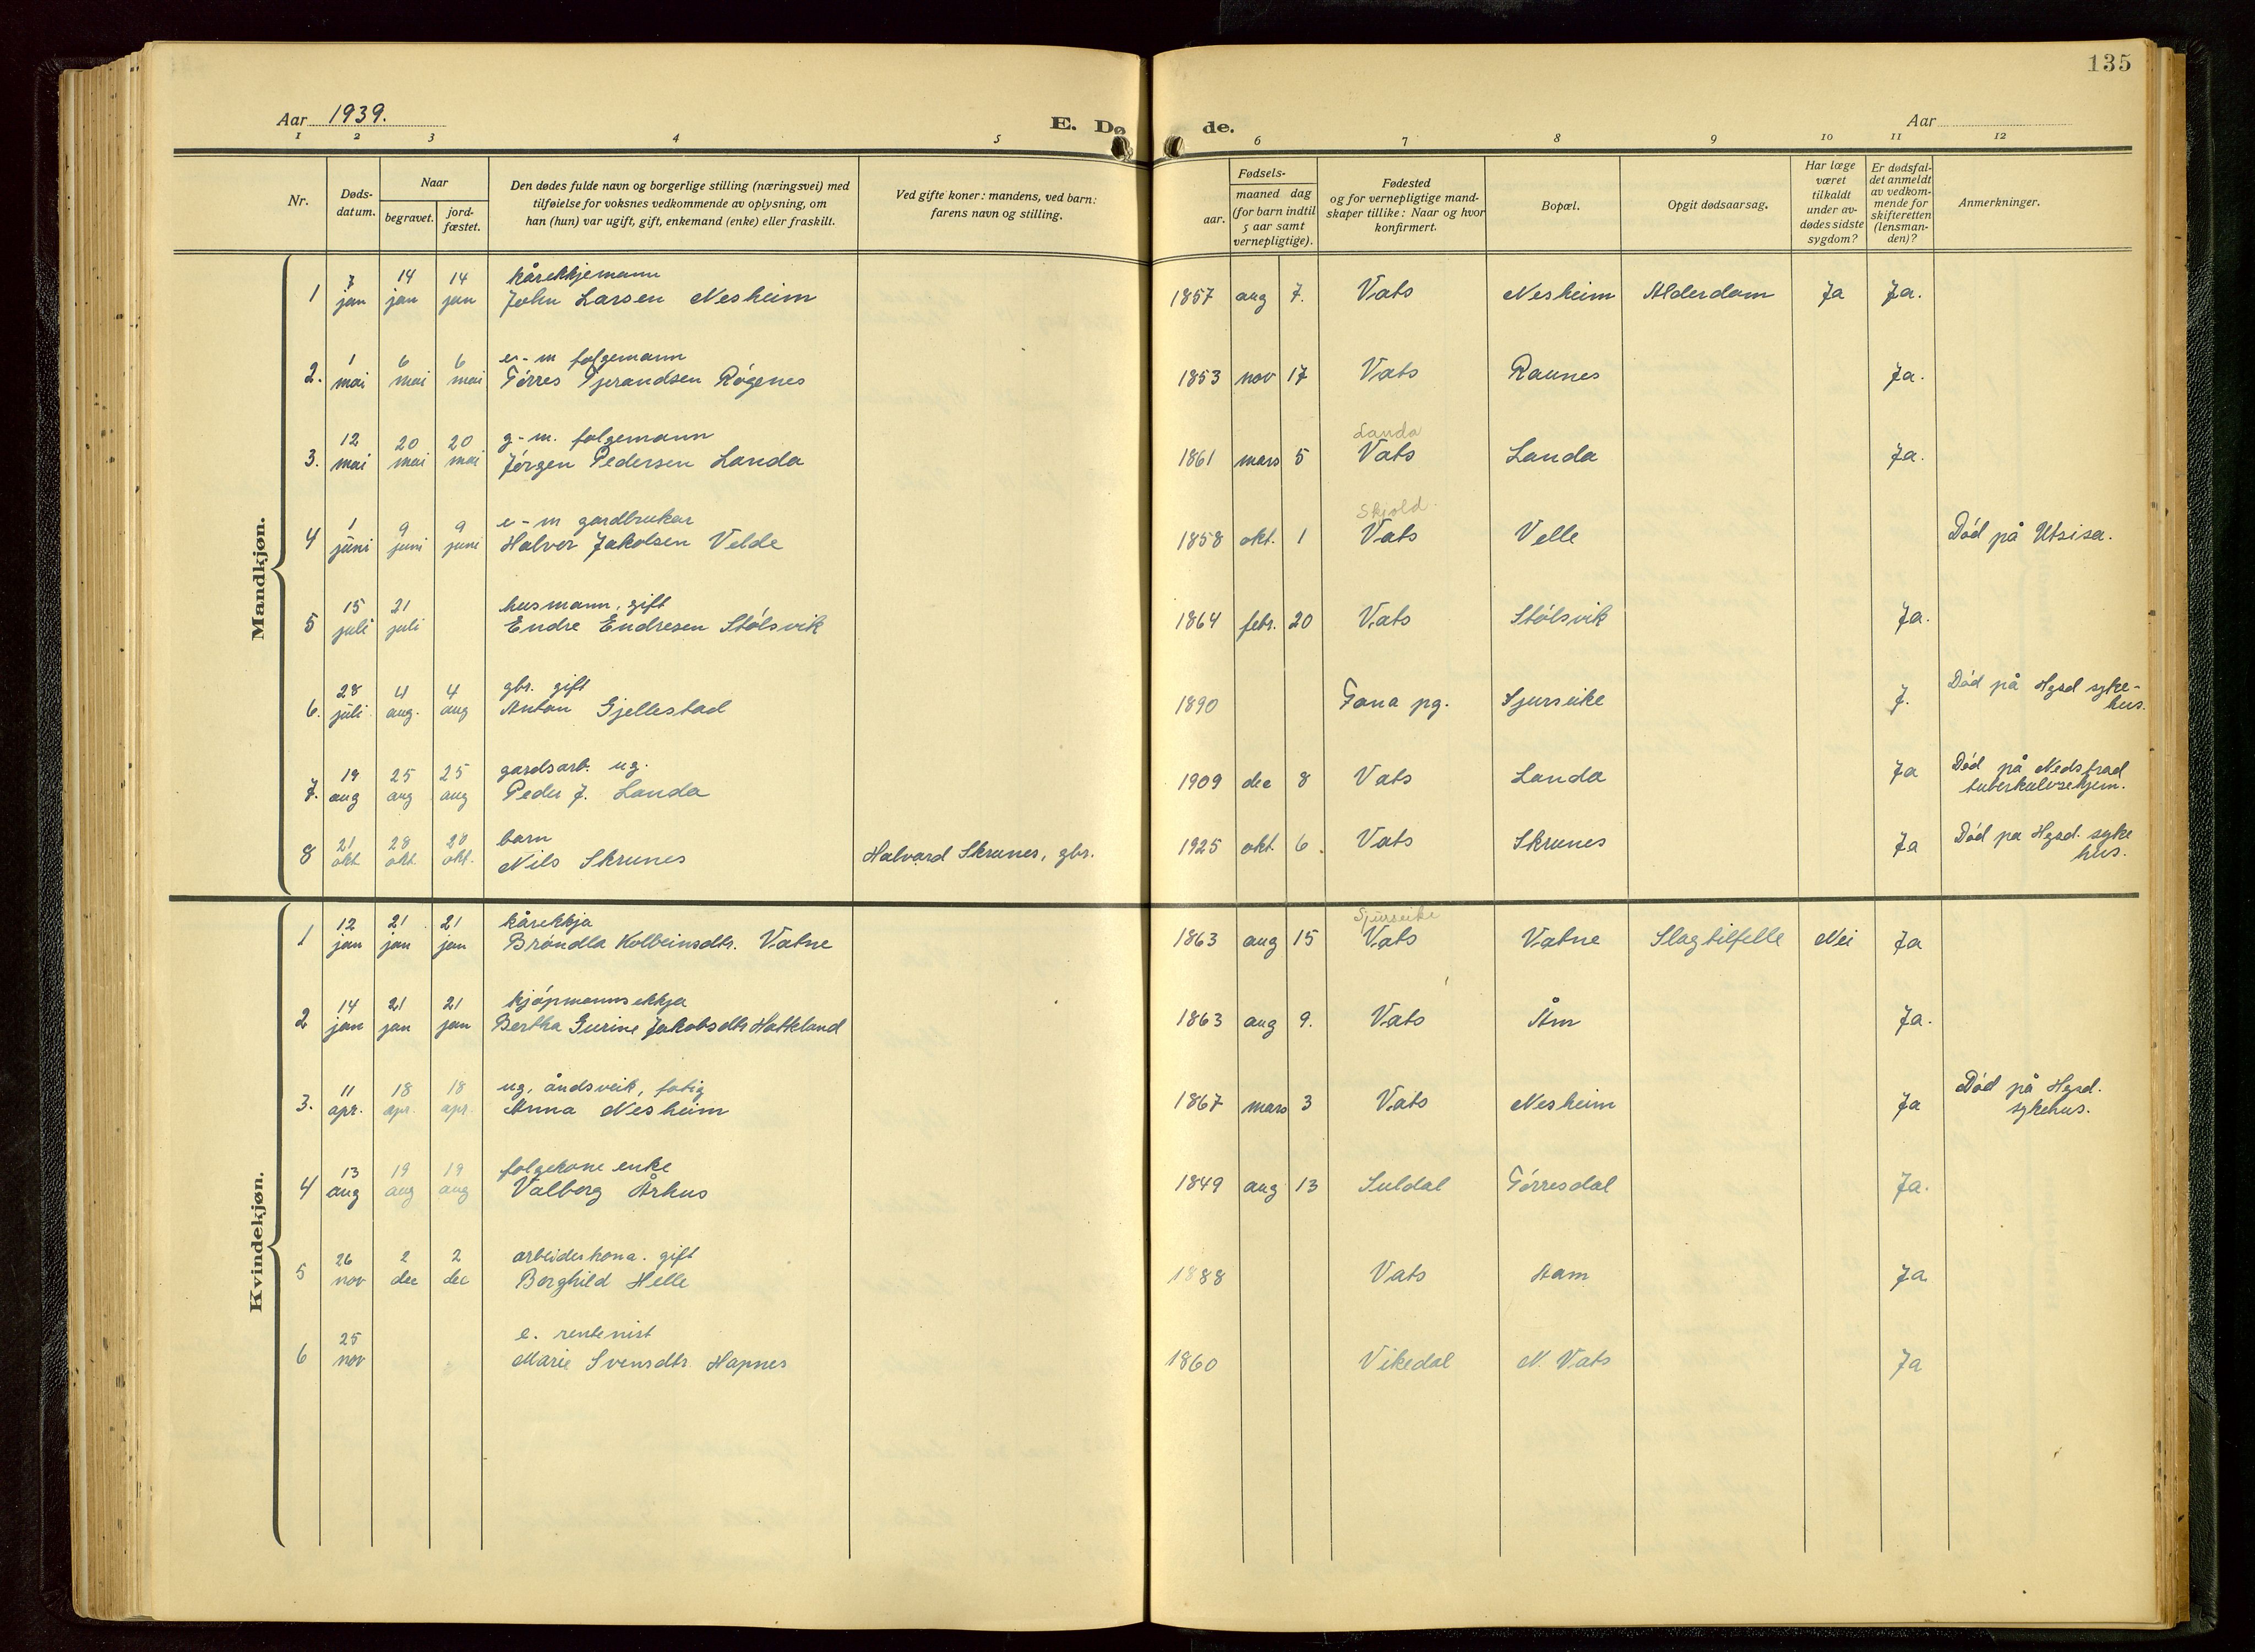 135
Aar 1939.
E. Dø de.
Aar
1 2 3 4 5 6 7 8 9 10 11 12
Nr.
Døds-
datum.
Naar
begravet.
jord-
fæstet.
Den dødes fulde navn og borgerlige stilling (næringsvei) med
tilføielse for voksnes vedkommende av oplysning, om
han (hun) var ugift, gift, enkemand (enke) eller fraskilt.
Ved gifte koner: mandens, ved barn:
farens navn og stilling.
Fødsels-
aar.
maaned dag
(for barn indtil
5 aar samt
vernepligtige).
Fødested
og for vernepligtige mand-
skaper tillike: Naar og hvor
konfirmert.
Bopæl.
Opgit dødsaarsag.
Har læge
været
tilkaldt
under av-
dødes sidste
sygdom?
Er dødsfal-
det anmeldt
av vedkom-
mende for
skifteretten
(lensman-
den)?
Anmerkninger.
Mandkjøn.
7 14 14 kårekkjemann
1 jan jan jan John Larsen Nesheim 1857 aug 7. Vats Nesheim Alderdom Ja Ja.
1 6 6 e-m folgemann
2. mai mai mai Tórres Gjerandsen Rógenes 1853 nov 17 Vats Raunes Ja.
12 20 20 g-m. folgemann Landa
3. mai mai mai Jórgen Pedersen Landa 1861 mars 5 Vats Landa Ja.
1 9 9 e-m gardbrukar Skjold.
4 juni juni juni Halvor Jakobsen Velde 1858 okt. 1 Vats Velle Død på Utsira.
15 21 husmann, gift
5 juli juli Endre Endresen Stólsvik 1864 febr. 20 Vats Stólsvik Ja.
28 4 4 gbr. gift
6. juli aug. aug Anton Gjellestad 1890 Fana pg. Sjurseike J. Død på Hgsd syke-
hus.
19 25 25 gardsarb. ug.
7. aug aug aug Peder J. Landa 1909 dec 8 Vats Landa Ja Død på Nedstrad
tuberkulosehjem.
21 28 28 barn
8 okt okt. okt. Nils Skrunes Halvard Skrunes, gbr. 1925 okt. 6. Vats Skrunes Ja Død på Hgsd. syke
hus.
Kvindekjøn.
12 21 21 kårekkja Sjurseike
1 jan jan jan Bróndla Kolbeinsdtr. Vatne 1863 aug 15 Vats Vatne Slagtilfelle Nei Ja
14 21 21 kjópmannsekkja
2 jan jan jan Bertha Gurine Jakobsdtr Hatteland 1863 aug 9. Vats Åm Ja.
11 18 18 ug, åndsveik, fatig
3. apr. apr. apr. Anna Nesheim 1867 mars 3 Vats Nesheim Ja Død på Hgsd.
sykehus.
13 19 19 folgekone enke
4 aug aug aug Valborg Århus 1849 aug 13 Suldal Tórresdal Ja.
26 2 2 arbeiderkona. gift
5 nov dec dec Borghild Helle 1888 Vats Aam Ja
25 e. rentenist
6 nov Marie Svensdtr. Hapnes 1860 Vikedal N. Vats Ja